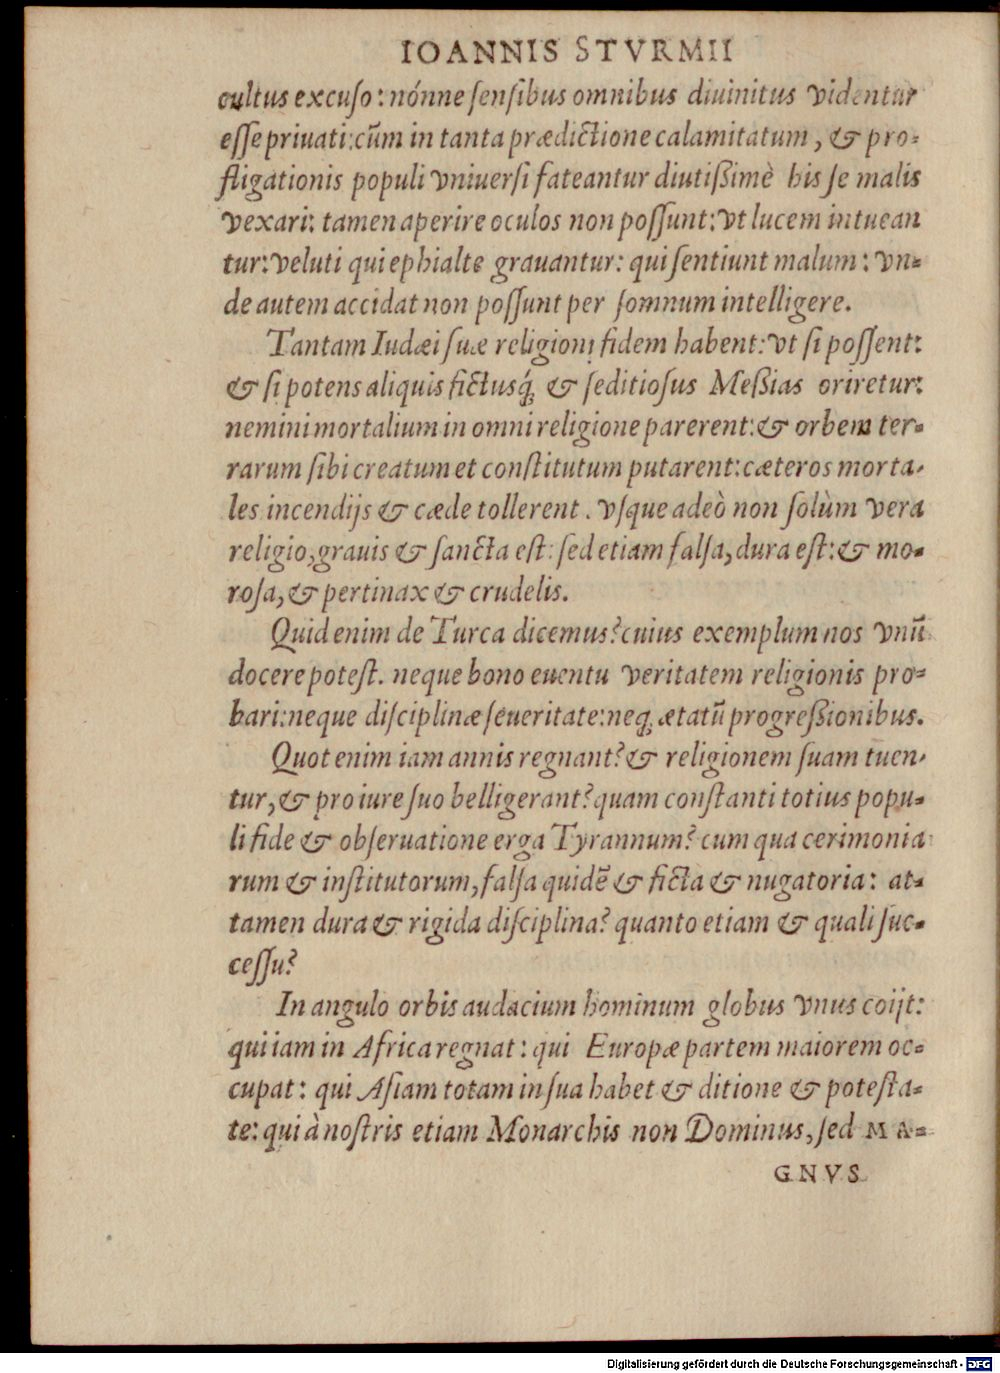 IOANNIS STVRMII
cultus excuſo: nónne ſenſibus omnibus diuinitus videntur
eſſe priuati: cũm in tanta prædictione calamitatum, & pro-
fligationis populi vniuerſi fateantur diutißimè his ſe malis
vexari: tamen aperire oculos non poſſunt: vt lucem intuean
tur: veluti qui ephialte grauantur: qui ſentiunt malum: vn-
de autem accidat non poſſunt per ſomnum intelligere.
Tantam Iudæi ſuæ religioni fidem habent: vt ſi poſſent:
& ſi potens aliquis fictusq́; & ſeditioſus Meßias oriretur:
nemini mortalium in omni religione parerent: & orbem ter-
rarum ſibi creatum et conſtitutum putarent: cæteros morta-
les incendijs & cæde tollerent. vſque adeò non ſolùm vera
religio, grauis & ſancta eſt: ſed etiam falſa, dura eſt: & mo-
roſa, & pertinax & crudelis.
Quid enim de Turca dicemus? cuius exemplum nos vnũ
docere poteſt. neque bono euentu veritatem religionis pro-
bari: neque diſciplinæ ſeueritate: neq; ætatũ progreßionibus.
Quot enim iam annis regnant? & religionem ſuam tuen-
tur, & pro iure ſuo belligerant? quam conſtanti totius popu-
li fide & obſeruatione erga Tyrannum? cum qua cerimonia
rum & inſtitutorum, falſa quidẽ & ficta & nugatoria: at-
tamen dura & rigida diſciplina? quanto etiam & quali ſuc-
ceſſu?
In angulo orbis audacium hominum globus vnus coijt:
qui iam in Africa regnat: qui Europæ partem maiorem oc-
cupat: qui Aſiam totam in ſua habet & ditione & poteſta-
te: qui à noſtris etiam Monarchis non Dominus, ſed MA-
GNVS
Digitalisierung gefördert durch die Deutsche Forschungsgemeinschaft - DFG